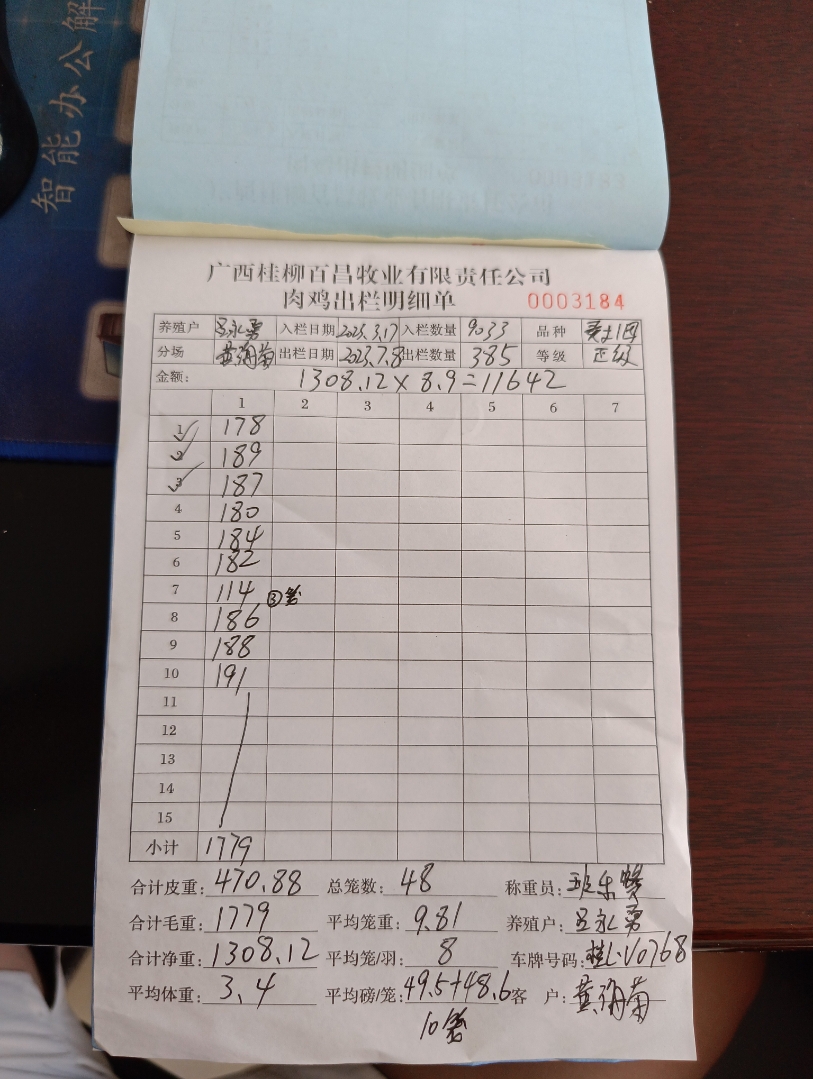 智能办公解
广西桂柳百昌牧业有限责任公司
肉鸡出栏明细单 0003184
养殖户 吕永勇 入栏日期 2023.3.17 入栏数量 9033 品种
分场 出栏日期 2023.7.8 出栏数量 385 等级 正级
金额: 1308.12×8.9=11642
1 2 3 4 5 6 7
1 178
2 189
3 187
4 180
5 184
6 182
7 114 ③笼
8 186
9 188
10 191
11
12
13
14
15
小计 1779
合计皮重: 470.88 总笼数: 48 称重员:
合计毛重: 1779 平均笼重: 9.81 养殖户: 吕永勇
合计净重: 1308.12 平均笼/羽: 8 车牌号码: 桂L·V0768
平均体重: 3.4 平均磅/笼: 49.5+48.6 客 户:
10笼